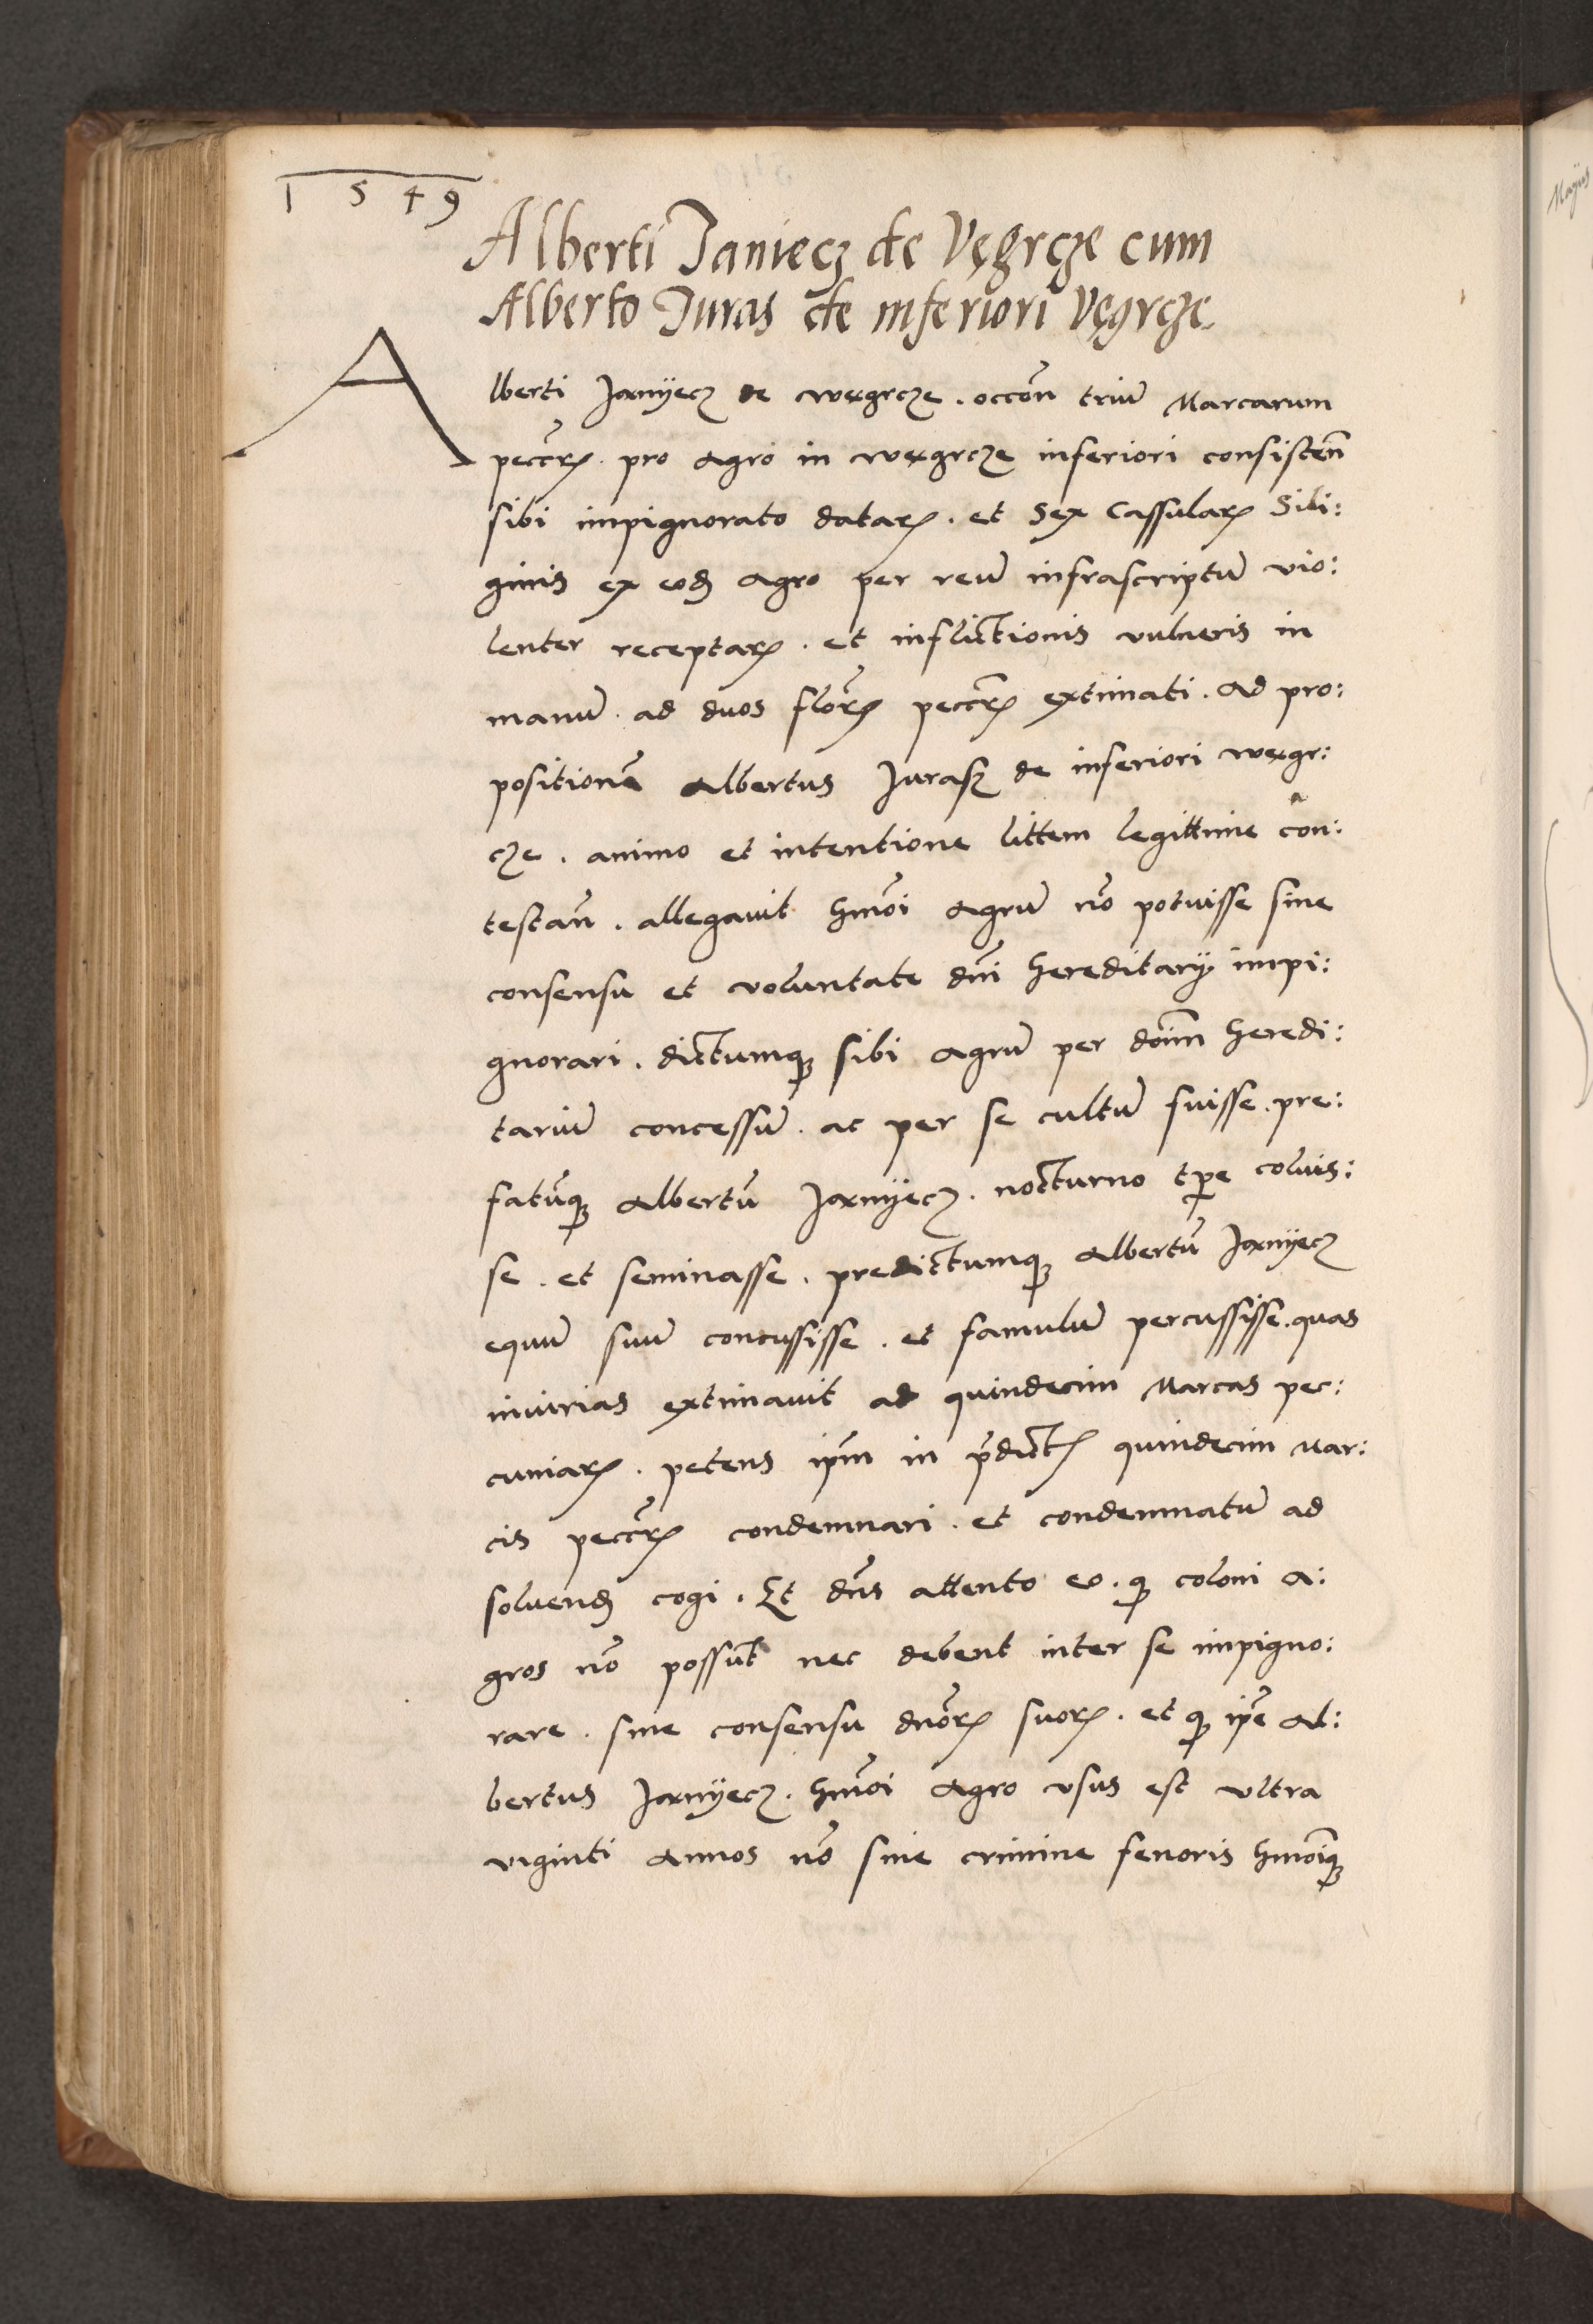 1549
Alberti Janiecz de Vęgrcze cum
Alberto Juras de inferiori Vęgrcze.
Alberti Janyecz de węgrcze. occōn triū Marcarum
peccr̄ꝝ. pro agro in węgrcze inferiori consisteñ
sibi impignorato dataꝝ. et Sex Cassulaꝝ Sili:
ginis ex eod agro per reū infrascriptū vio:
lenter receptaꝝ. et inflictionis vulneris in
manū. ad duos flōrꝝ peccr̄ꝝ extimati. Ad pro:
positionē Albertus Jurasz de inferiori węgr:
cze. animo et intentione littem legittime con:
testañ. allegavit hmōi agrū nō potuisse sine
consensu et voluntate dn̄i hereditarÿ impi:
gnorari. dictumqꝫ sibi agrū per doīm heredi:
tariū concessū. ac per se cultū fuisse. pre:
fatūqꝫ Albertū Janyecz. nocturno tꝑe coluis:
se. et seminasse. predictumqꝫ Albertū Janyecz
equū suū concussisse. et famulū percussisse. quas
iniurias extimavit ad quindecim Marcas pec:
cuniaꝝ. petens ip̄m in p̄dictꝭ quindecim Mar:
cis peccr̄ꝝ condemnari. et condemnatū ad
solvend cogi. Et dn̄s attento eo. qꝫ coloni a:
gros nō possūt nec debent inter se impigno:
rare. sine consensu dnōrꝝ suoꝝ. et qꝫ ip̄e Al:
bertus Janyecz. hmōi agro usus est ultra
viginti annos nō sine crimine fenoris hmōiqꝫ
Majus